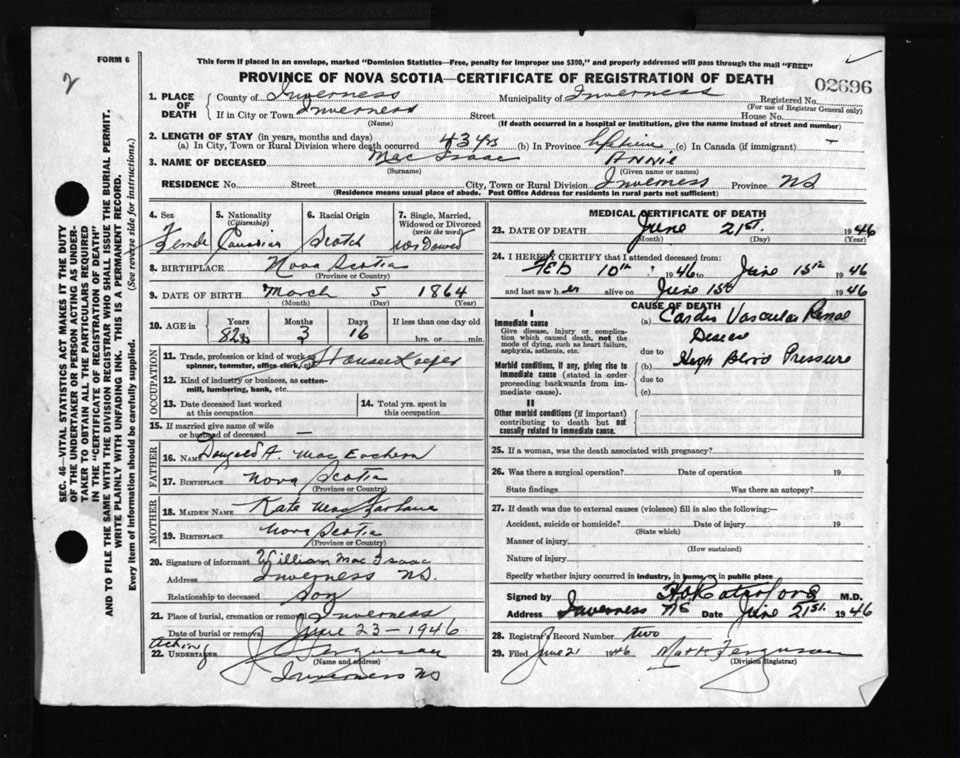 FORM 6
2
This form if placed in an envelope, marked "Dominion Statistics—Free, penalty for improper use $300," and properly addressed will pass through the mail "FREE"
PROVINCE OF NOVA SCOTIA—CERTIFICATE OF REGISTRATION OF DEATH
02696
1. PLACE OF DEATH County of Inverness Municipality of Inverness Registered No.
(For use of Registrar General only)
If in City or Town Inverness Street House No.
(Name) (If death occurred in a hospital or institution, give the name instead of street and number)
2. LENGTH OF STAY (in years, months and days)
(a) In City, Town or Rural Division where death occurred 43 yrs (b) In Province Lifetime (c) In Canada (if immigrant) —
3. NAME OF DECEASED Mac Isaac ANNIE
(Surname) (Given name or names)
RESIDENCE No. Street City, Town or Rural Division Inverness Province NS
(Residence means usual place of abode. Post Office Address for residents in rural parts not sufficient)
4. Sex Female
5. Nationality (Citizenship) Canadian
6. Racial Origin Scotch
7. Single, Married, Widowed or Divorced (write the word) Widowed
8. BIRTHPLACE Nova Scotia
(Province or Country)
9. DATE OF BIRTH March 5 1864
(Month) (Day) (Year)
10. AGE in Years Months Days If less than one day old
82 3 16 hrs. or min.
OCCUPATION
11. Trade, profession or kind of work as spinner, teamster, office clerk, etc. HouseKeeper
12. Kind of industry or business, as cotton-mill, lumbering, bank, etc.
13. Date deceased last worked at this occupation
14. Total yrs. spent in this occupation
15. If married give name of wife or husband of deceased —
FATHER
16. Name Dougald A. Mac Eachern
17. BIRTHPLACE Nova Scotia
(Province or Country)
MOTHER
18. MAIDEN NAME Kate MacFarlane
19. BIRTHPLACE Nova Scotia
(Province or Country)
20. Signature of informant William Mac Isaac
Address Inverness NS.
Relationship to deceased Son
21. Place of burial, cremation or removal Inverness
Date of burial or removal June 23 - 1946
Acting
22. UNDERTAKER J Ferguson
(Name and address)
Inverness NS
MEDICAL CERTIFICATE OF DEATH
23. DATE OF DEATH June 21st. 1946
(Month) (Day) (Year)
24. I HEREBY CERTIFY that I attended deceased from:
FEB 10th 1946 to June 15th 1946
and last saw her alive on June 15th 1946
CAUSE OF DEATH
I
Immediate cause
Give disease, injury or complication which caused death, not the mode of dying, such as heart failure, asphyxia, asthenia, etc.
(a) Cardio Vascular Renal
Disease
due to
Morbid conditions, if any, giving rise to immediate cause (stated in order proceeding backwards from immediate cause).
(b) High Blood Pressure
due to
(c)
II
Other morbid conditions (if important) contributing to death but not causally related to immediate cause.
25. If a woman, was the death associated with pregnancy?
26. Was there a surgical operation? Date of operation 19
State findings Was there an autopsy?
27. If death was due to external causes (violence) fill in also the following:—
Accident, suicide or homicide? Date of injury 19
(State which)
Manner of injury
(How sustained)
Nature of injury
Specify whether injury occurred in industry, in home, or in public place
Signed by M.D.
Address Inverness NS Date June 21st. 1946
28. Registrar's Record Number two
29. Filed June 21 1946 Ferguson
(Division Registrar)
SEC. 46—VITAL STATISTICS ACT MAKES IT THE DUTY
OF THE UNDERTAKER OR PERSON ACTING AS UNDER-
TAKER TO OBTAIN ALL THE PARTICULARS REQUIRED
IN THE "CERTIFICATE OF REGISTRATION OF DEATH"
AND TO FILE THE SAME WITH THE DIVISION REGISTRAR WHO SHALL ISSUE THE BURIAL PERMIT.
WRITE PLAINLY WITH UNFADING INK. THIS IS A PERMANENT RECORD.
Every item of information should be carefully supplied. (See reverse side for instructions.)